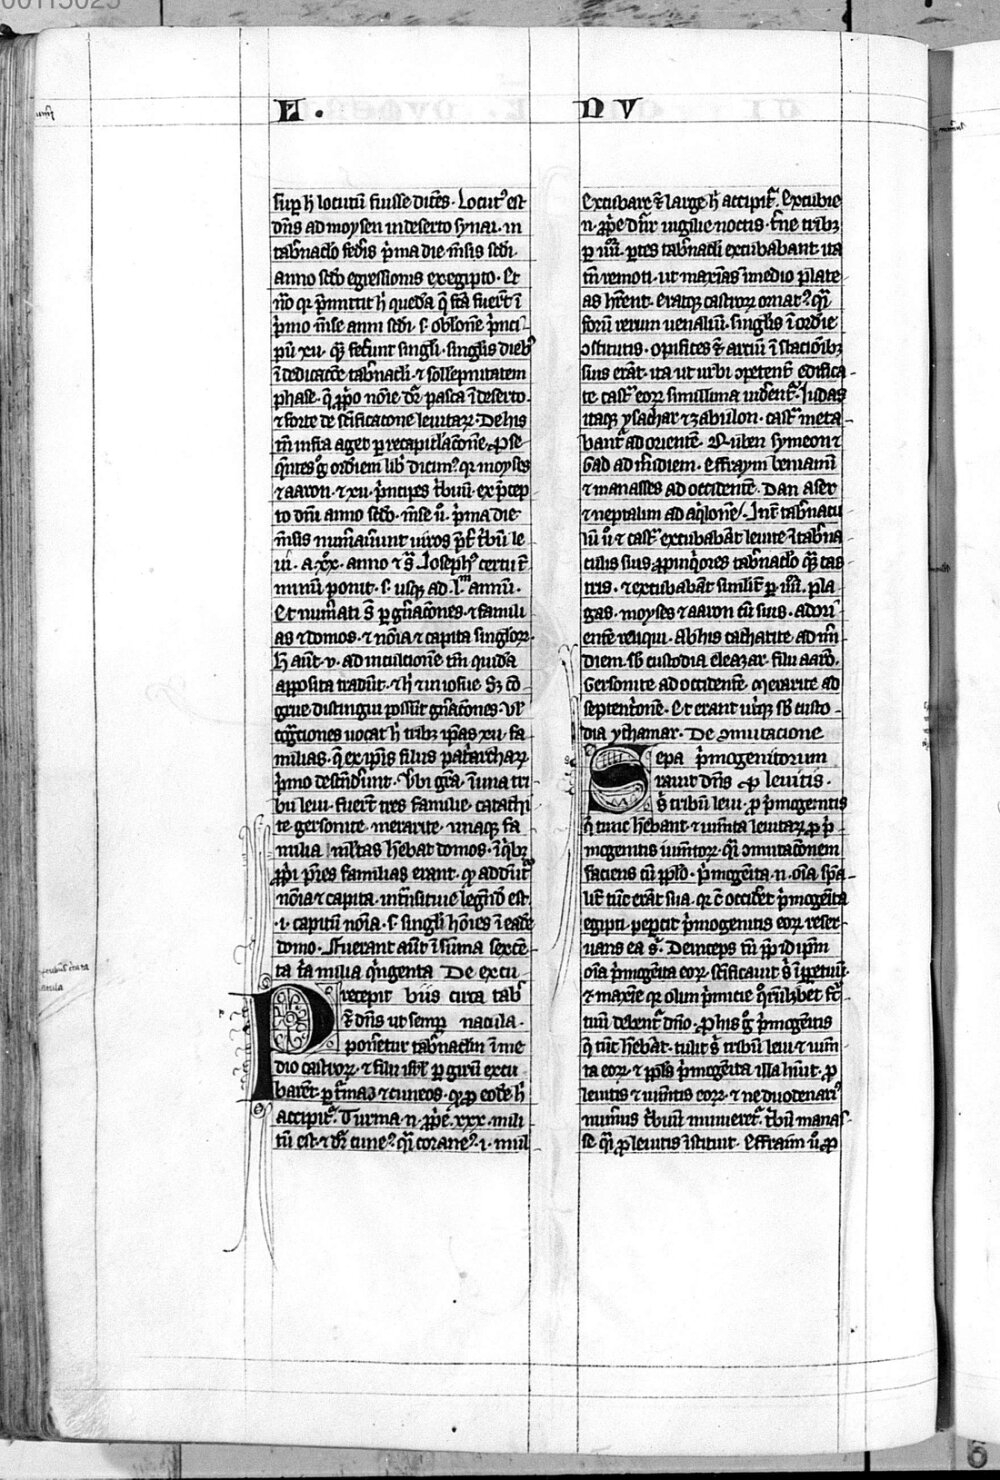 H.
NV
sup̄ h̄ locutū fuisse dic̄tes. Locut᷒ est
dn̄s ad moysen in deserto synai. in
tab̄naclo fed̄is p̄ma die m̄sis sc̄di.
anno sc̄do egressionis ex egipto. Et
nō qr p̄mittit h̄ quedā q̄ fc̄a fuer̄t ī
p̄mo m̄se anni sc̄di. s. oblōne p̄nci-
pū xii. q̄ fec̄unt singl̄i. singl̄is dieb᷒
ī dedicac̄oe tab̄nacl̄i. ⁊ sollepnitatem
phase. q̄ ꝓpo nōie dr̄ pasca ī deserto.
⁊ forte de sc̄ificatōne leuitaꝝ. De his
tn̄ infra aget ꝑ recapitl̄acōne. ꝓse
q̄ntes ḡ ordīem libͥ dicim᷒ qr moyses
⁊ aaron. ⁊ xii. p̄ncipes tͥbuū. ex p̄cep
to dn̄i anno sc̄do. m̄se ū. p̄ma die
m̄sis num̄auunt uiros p̄t̄ tͥbū le
ui. a .xx. anno ⁊ s̄. Joseph᷒ certū t̄
minū ponit. s. usqꝫ ad .l.m annū.
Et num̄ati s̄ ꝑ gn̄acōnes. ⁊ famili
as ⁊ domos. ⁊ nōia ⁊ capita singloꝝ.
h̄ aūt .v. ad inculcōne tm̄ quidā
apposita tradūt. ⁊ h̄ ⁊ in iosue sꝫ cō
grue distingui possūt gn̄acōnes. Vl̄
coḡcōnes uocat h̄ tribꝫ ip̄as xii fa
milias. q̄ ex ip̄is filiis pat̄archaꝝ
p̄mo desc̄ndūnt. Vbi gr̄a. ī una tri
bu leui. fuer̄t tres familie. catathi
te gersonite. merarite. unaqꝫ fa
milia ml̄tas hēbat domos. ī qͥbꝫ
ꝓpi pr̄es familias erant. qd̄ addūt᷒
nōia ⁊ capita. int̄nsitiue legēdū est.
.i. capitū nōia. s. singl̄i hōies ī eadē
domo. Fuerant aūt ī sūma sexcē
ta t̄a milia qͥngenta De excu
Precepit biis circa tab̄
⁊ dn̄s ut semp nacula.
ponetur tab̄naclm̄ ī me
dio castroꝝ. ⁊ filii isrl̄ ꝑ girū excu
barēt ꝑ tͥmas ⁊ cuneos. qd̄ ꝓ eodē h̄
accipit᷒. Turma .n. ꝓpͥe .xxx. mili
tū est. ⁊ dr̄ cune᷒ qͣi corane᷒ .i. mil̄
excubare ⁊ large h̄ accipit᷒. Excubie
.n. ꝓpͥe dn̄r uigilie noctis. t̄ne tribꝫ
ꝑ iiii. ꝑtes tab̄nacli excubabant ita
tn̄ remoti. ut maxīas ī medio plate
as hr̄ent. eratqꝫ castroꝝ ornat᷒ qͣi
forū rerum uenaliū. singl̄is ī ordīe
ↄstitutis. opifices ⁊ artiū ī stacōibꝫ
suis erāt. ita ut urbi ↄpetent̄ edifica-
te casͣ eoꝝ simillima uid̄ent᷒. Judas
itaqꝫ ysachar ⁊ zabulon. casͣ meta
bant᷒ ad orientē. Ruben symeon ⁊
Gad ad m̄idiem. effraym beniamī
⁊ manasses ad occidentē. Dan aser
⁊ neptalim ad aqͥlonē. Int̄ tab̄nacu
lū ū ⁊ casͣ excubabāt leuite ī tab̄na
culis suis ꝓpinqͥores tab̄naclo qͣ cas
tris. ⁊ excubabāt similit̄ ꝑ iiii. pla
gas. moyses ⁊ aaron cū suis. ad ori
entē reliqui. Ab his cathatite ad m̄i
diem. sb̄ custodia eleazar. filii aarō.
Gersonite ad occidentē. Merarite ad
septent̄onē. Et erant utͥqꝫ sb̄ custo-
dia ythamar. De ↄmutacione
Sepa p̄mogenitorum
rauit dn̄s ꝓ leuitis.
s̄ tribū leui. ꝓ p̄mogenitis
q̄ tunc hēbant. ⁊ iumta leuitaꝝ ꝓ p̄-
mogenitis iumtoꝝ. qͣi ↄmutacōnem
faciens cū pplo. p̄mogēita .n. oīa spāl
lit̄ tūc erāt sua. qr c̄ occid̄et p̄mogēita
egipti. pep̄cit p̄mogenitis eoꝝ reser
uans ea s̄. Deinceps tn̄ ꝓp id ip̄m
oīa p̄mogēita eoꝝ. sc̄ificauit s̄ ī ppetuū.
⁊ maxīe qr olim p̄micie qͦrūlibet fc̄
tuū debent᷒ dn̄o. ꝓ his ḡ p̄mogēitis
q̄ tūc hēbāt. tulit s̄ tribū leui ⁊ ium
ta eoꝝ. ⁊ ppls p̄mogēita illa hīuit. ꝓ
leuitis ⁊ iumtis eoꝝ. ⁊ ne duodenari᷒
num̄us tͥbuū minueret᷒. tͥbū manas-
se qͣi ꝓ leuitis īstituit. Effraim ū ꝓ